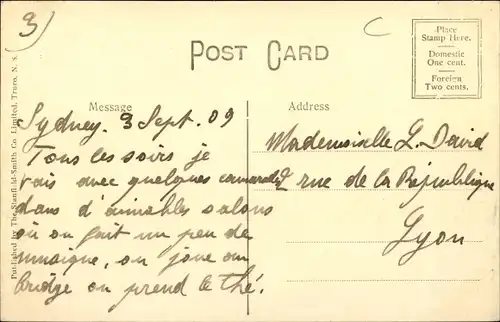 3)
C
POST CARD
Place
Stamp Here.
Domestic
One cent.
Foreign
Two cents.
Published by The Stanfield-Smith Co. Limited, Truro, N. S.
Message
Address
Sydney. 3 Sept. 09
Tous les soirs je
vais avec quelques camarades
dans d'aimables salons
où on fait un peu de
musique, on joue au
bridge on prend le thé.
Mademoiselle L. David
2 rue de la République
Lyon